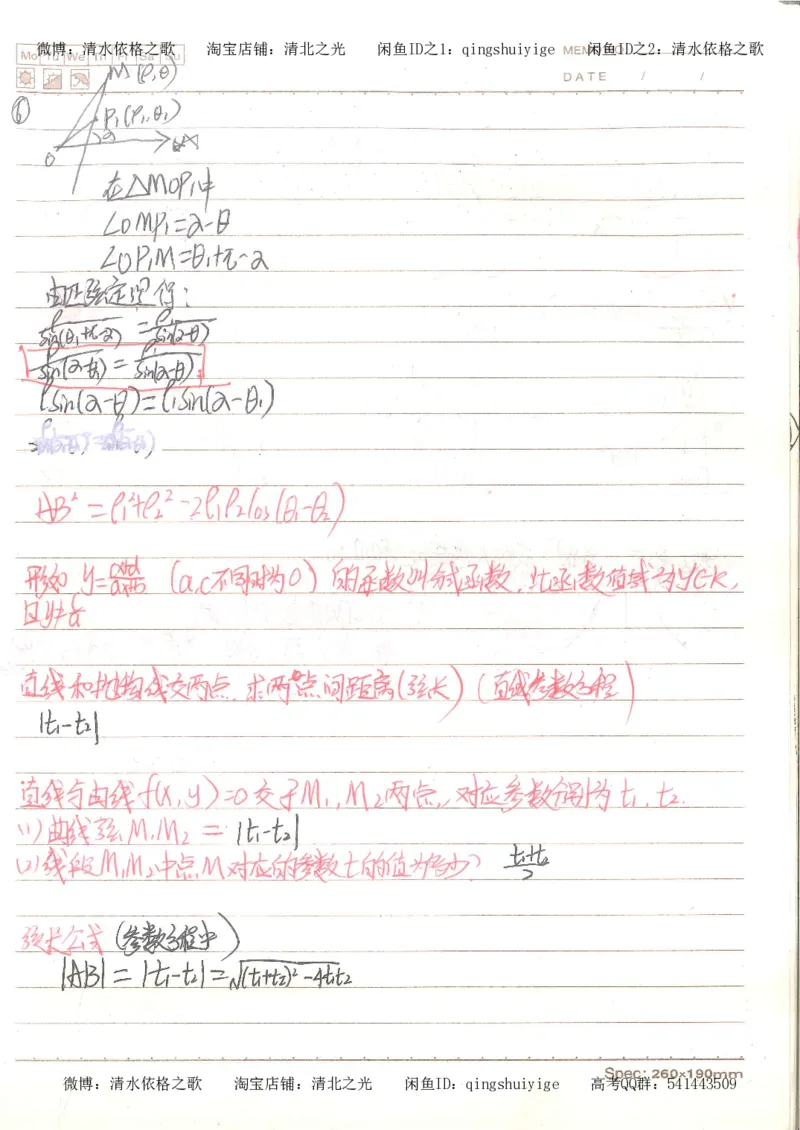 微博：清水依格之歌 淘宝店铺：清北之光 闲鱼ID之1：qingshuiyige 闲鱼ID之2：清水依格之歌
Mo Tu We Th Fr Sa Su
DATE / /
M(ρ,θ)
⑥
P₁(ρ₁,θ₁)
O
在△MOP₁中
∠OMP₁=α-θ
∠OP₁M=θ₁+π-α
由正弦定理得：
ρ/sin(θ₁+π-α) = ρ₁/sin(α-θ)
ρ/sin(α-θ₁) = ρ₁/sin(α-θ)
ρsin(α-θ)=ρ₁sin(α-θ₁)
AB²=ρ₁²+ρ₂²-2ρ₁ρ₂cos(θ₁-θ₂)
形如 y= (a,c不同时为0) 的函数叫分式函数，此函数值域为y∈R,
且y≠
直线和抛物线交两点，求两点间距离(弦长) (直线参数方程)
|t₁-t₂|
直线与曲线f(x,y)=0交于M₁,M₂两点，对应参数分别为t₁,t₂.
(1)曲线弦M₁M₂ = |t₁-t₂|
(2)线段M₁M₂中点M对应的参数t的值为多少？ t₁+t₂/2
弦长公式(参数方程中)
|AB|=|t₁-t₂|=√(t₁+t₂)²-4t₁t₂
Spec: 260×190mm
微博：清水依格之歌 淘宝店铺：清北之光 闲鱼ID：qingshuiyige 高考QQ群：541443509